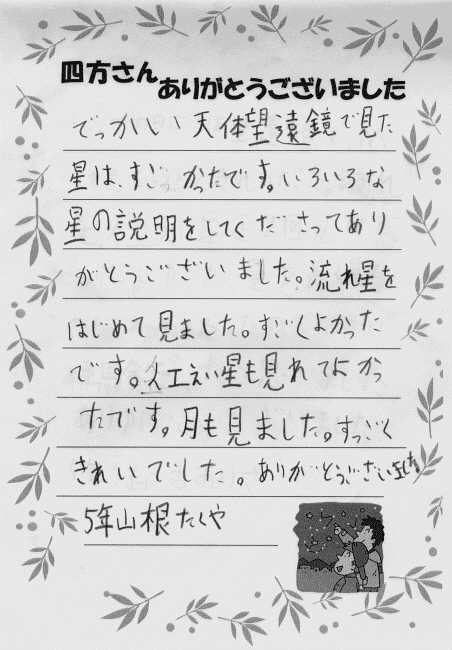 四方さん
ありがとうございました
でっかいい天体望遠鏡で見た
星は、すごかったです。いろいろな
星の説明をしてくださってあり
がとうございました。流れ星を
はじめて見ました。すごくよかった
です。人工えい星も見れてよかっ
たです。月も見ました。すっごく
きれいでした。ありがとうございました
5年山根たくや